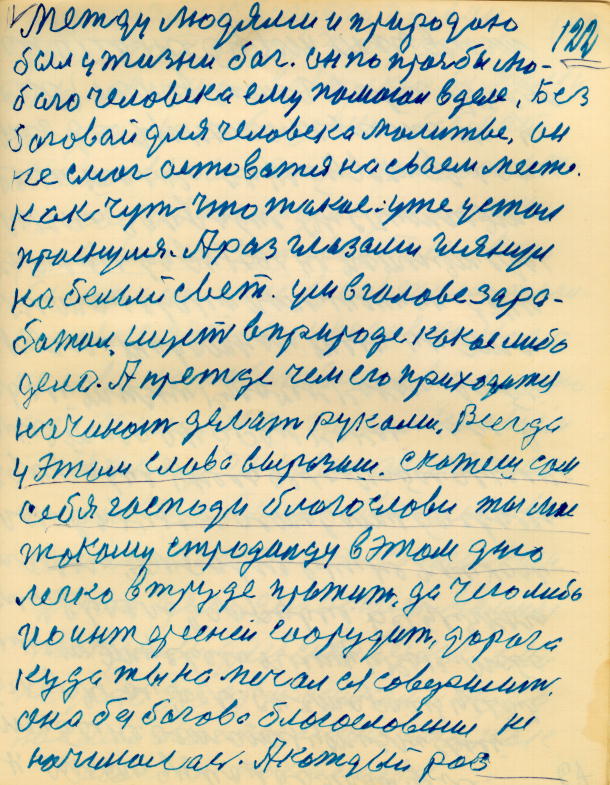 122
Между людями и природаю
бал у жизни бог. он по прозбы лю-
бого человека ему помогал в деле, Без
боговай для человека молитвы, он
не смог остоватся на своем месте.
Как чут что такое. уже устал
проснулся. А раз глазами глянул
на белый свет. ум в голове зара-
ботал, ищет в природе какое либо
дело. А прежде чем его приходится
начинат делат руками. Всегда
у этом слова вырозиш. скажеш сам
себя господи благослови ты мне
такому страдалцу в этом дню
легко в труде прожит, да чего либо
по интересней соорудит, дорога
куда ты намечался совершит.
она без богова благословения не
начиналас. А каждый раз